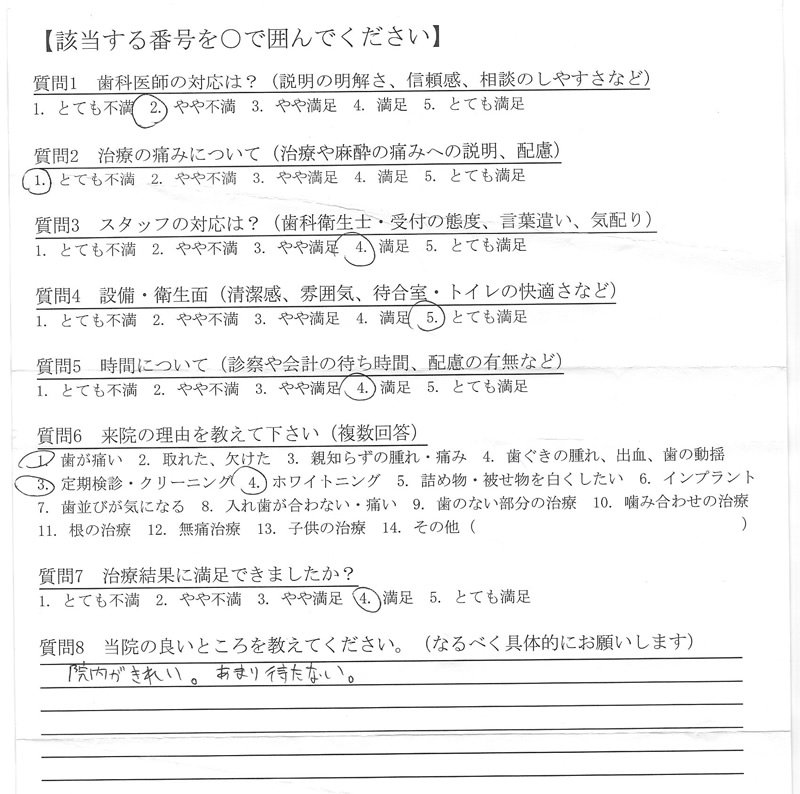 【該当する番号を〇で囲んでください】
質問1 歯科医師の対応は？（説明の明解さ、信頼感、相談のしやすさなど）
1. とても不満 2. やや不満 3. やや満足 4. 満足 5. とても満足
質問2 治療の痛みについて（治療や麻酔の痛みへの説明、配慮）
1. とても不満 2. やや不満 3. やや満足 4. 満足 5. とても満足
質問3 スタッフの対応は？（歯科衛生士・受付の態度、言葉遣い、気配り）
1. とても不満 2. やや不満 3. やや満足 4. 満足 5. とても満足
質問4 設備・衛生面（清潔感、雰囲気、待合室・トイレの快適さなど）
1. とても不満 2. やや不満 3. やや満足 4. 満足 5. とても満足
質問5 時間について（診察や会計の待ち時間、配慮の有無など）
1. とても不満 2. やや不満 3. やや満足 4. 満足 5. とても満足
質問6 来院の理由を教えて下さい（複数回答）
1. 歯が痛い 2. 取れた、欠けた 3. 親知らずの腫れ・痛み 4. 歯ぐきの腫れ、出血、歯の動揺
3. 定期検診・クリーニング 4. ホワイトニング 5. 詰め物・被せ物を白くしたい 6. インプラント
7. 歯並びが気になる 8. 入れ歯が合わない・痛い 9. 歯のない部分の治療 10. 噛み合わせの治療
11. 根の治療 12. 無痛治療 13. 子供の治療 14. その他（ ）
質問7 治療結果に満足できましたか？
1. とても不満 2. やや不満 3. やや満足 4. 満足 5. とても満足
質問8 当院の良いところを教えてください。（なるべく具体的にお願いします）
院内がきれい。あまり待たない。